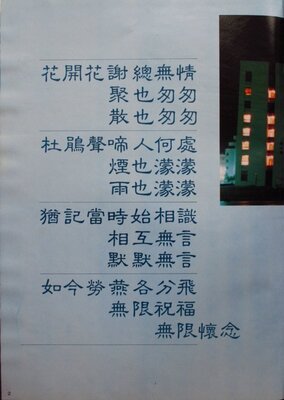 花開花謝總無情
聚也匆匆
散也匆匆
杜鵑聲啼人何處
煙也濛濛
雨也濛濛
猶記當時始相識
相互無言
默默無言
如今勞燕各分飛
無限祝福
無限懷念
2